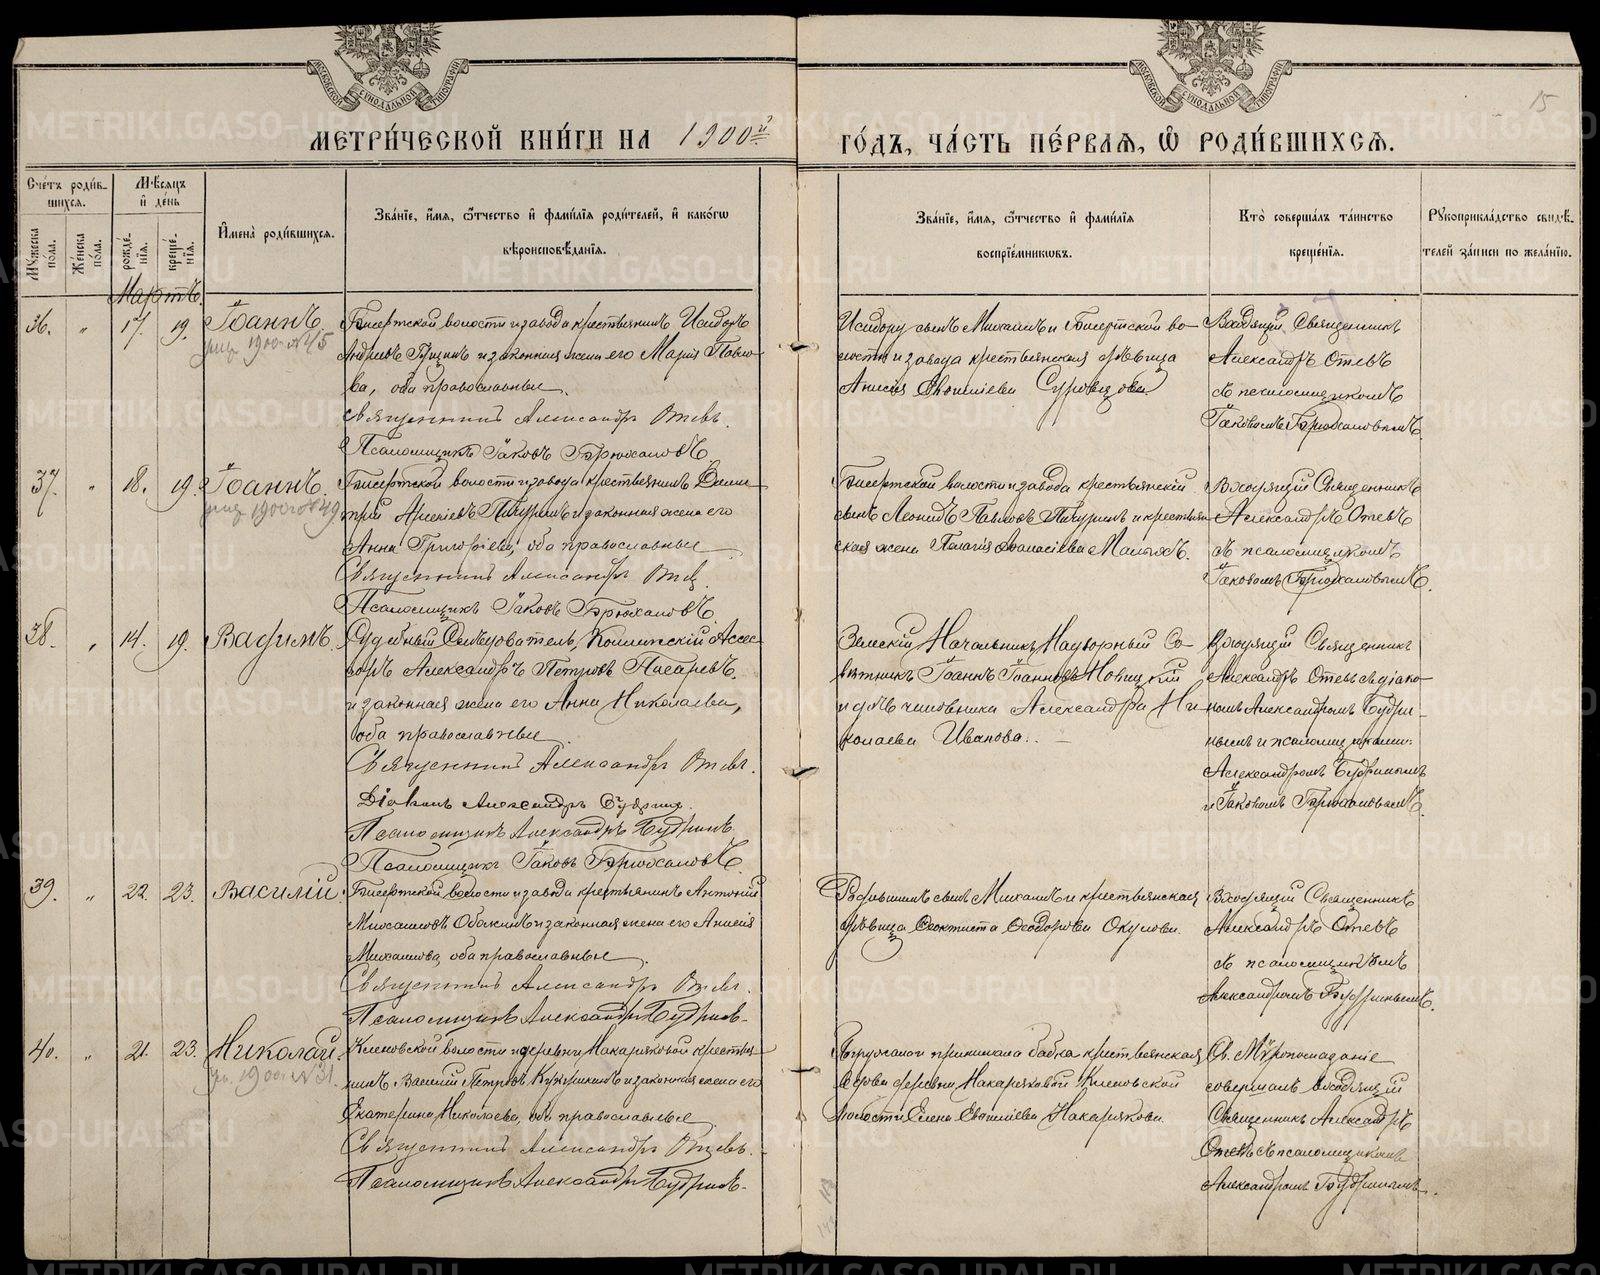 МОСКОВСКОЙ СѴНОДАЛЬНОЙ ТИПОГРАФІИ
МОСКОВСКОЙ СѴНОДАЛЬНОЙ ТИПОГРАФІИ
15
МЕТРИ́ЧЕСКОЙ КНИ́ГИ НА 1900й
ГО́ДЪ, ЧА́СТЬ ПЕ́РВАѦ, Ѡ҆ РОДИ́ВШИХСѦ.
Сче́тъ роди́в-
шихсѧ.
Мꙋ́жеска по́ла.
Же́нска по́ла.
Мѣ́сѧцъ
и҆ де́нь
рожде́-
нїѧ.
креще́-
нїѧ.
И҆мена̀ роди́вшихсѧ.
Зва́нїе, и҆́мѧ, ѻ҆́тчество и҆ фами́лїѧ роди́телей, и҆ како́гѡ
вѣроисповѣ́данїѧ.
Зва́нїе, и҆́мѧ, ѻ҆́тчество и҆ фами́лїѧ
воспрїе́мникѡвъ.
Кто̀ соверша́лъ та́инство
креще́нїѧ.
Рꙋкоприкла́дство свидѣ́-
телей за́писи по жела́нїю.
Мартъ.
36. " 17. 19. Іоаннъ.
Бисертской волости и завода крестьянинъ Исидоръ
Андреевъ и законная жена его Марія Павло-
ва, оба православные.
Священникъ Александръ Отевъ.
Псаломщикъ Іаковъ Брюхановъ.
Исидору сынъ Михаилъ и Бисертской во-
лости и завода крестьянская дѣвица
Анисія
Входящій Священникъ
Александръ Отевъ
съ псаломщикомъ
Іаковомъ Брюхановымъ.
37. " 18. 19. Іоаннъ.
Бисертской волости и завода крестьянинъ Дими-
трій Арсеніевъ Пичугинъ и законная жена его
Анна Григоріева, оба православные
Священникъ Александръ Отевъ.
Псаломщикъ Іаковъ Брюхановъ.
Бисертской волости и завода крестьянскій
сынъ Леонидъ Павловъ Пичугинъ и крестьян
ская жена Пелагія Аѳанасіева
Входящій Священникъ
Александръ Отевъ
съ псаломщикомъ
Іаковомъ Брюхановымъ.
38. " 14. 19. Вадимъ.
Судебный Слѣдователь, Коллежскій Ассес-
соръ Александръ Петровъ Писаревъ
и законная жена его Анна Николаева,
оба православные.
Священникъ Александръ Отевъ.
Діаконъ Александръ Будринъ.
Псаломщикъ Александръ Будринъ.
Псаломщикъ Іаковъ Брюхановъ.
Земскій Начальникъ, Надворный Со-
вѣтникъ Іоаннъ Іоанновъ Новицкій
и дочь чиновника Александра Ни
колаева Иванова.
Входящій Священникъ
Александръ Отевъ съ діако-
номъ Александромъ Будри-
нымъ и псаломщиками:
Александромъ Будринымъ
и Іаковомъ Брюхановымъ.
39. " 22. 23. Василій.
Бисертской волости и завода крестьянинъ Антоній
Михаиловъ и законная жена его Анисія
Михаилова, оба православные.
Священникъ Александръ Отевъ.
Псаломщикъ Александръ Будринъ.
сынъ Михаилъ и крестьянская
дѣвица Ѳеоктиста Ѳеодорова Окулова.
Входящій Священникъ
Александръ Отевъ
съ псаломщикомъ
Александромъ Будринымъ.
40. " 21. 23. Николай.
Кленовской волости и деревни Накаряковой крестья
нинъ Василій Петровъ и законная жена его
Екатерина Николаева, оба православные.
Священникъ Александръ Отевъ.
Псаломщикъ Александръ Будринъ.
Погружала и принимала бабка крестьянская
вдова деревни Накаряковой Кленовской
волости Елена Накарякова.
Св. Мѵропомазаніе
совершалъ входящій
Священникъ Александръ
Отевъ съ псаломщикомъ
Александромъ Будринымъ.
METRIKI.GASO-URAL.RU